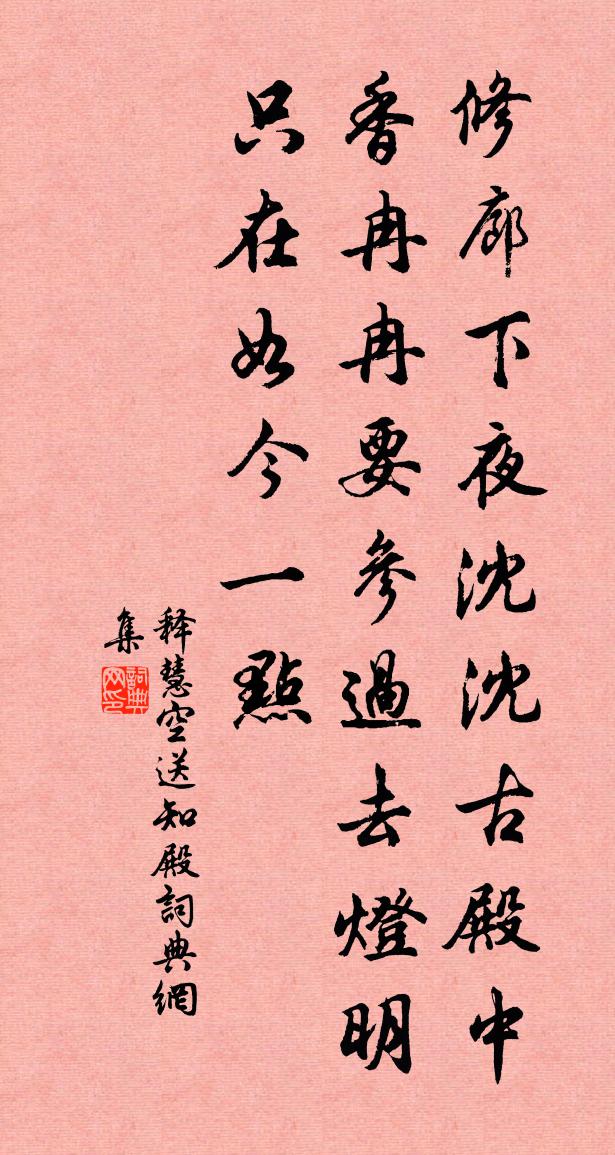 修廊下夜沈沈古殿中
香冉冉要參過去燈明
只在如今一點
释慧空送知殿詞典網
集
詞典
网印